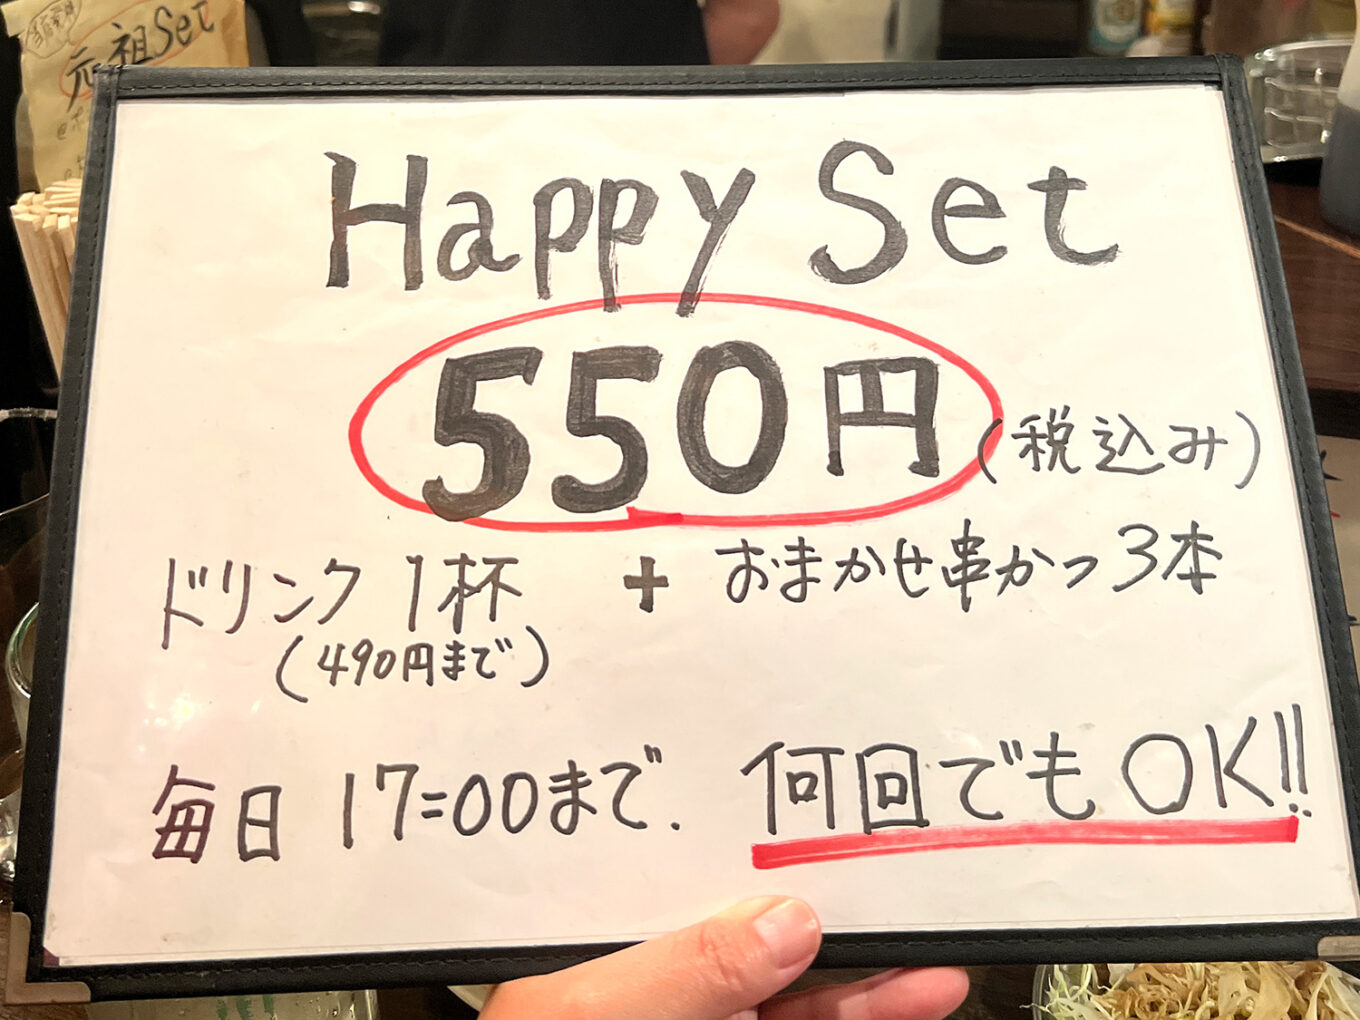 元祖Set
Happy Set
550円 (税込み)
ドリンク 1杯 + おまかせ串かつ3本
(490円まで)
毎日 17:00まで. 何回でもOK!!